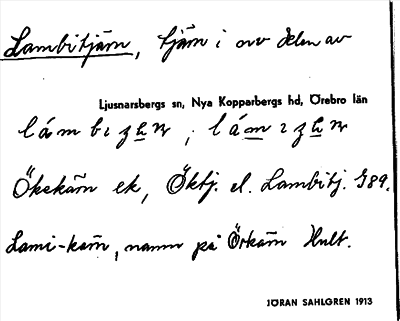 Lambitjärn, tjärn i örv delen av
Ljusnarsbergs sn, Nya Kopparbergs hd, Örebro län
Ökskärn ek, Öktj. el. Lambitj. G89.
Lami-kärn, namn på Örkärn Hult.
JÖRAN SAHLGREN 1913